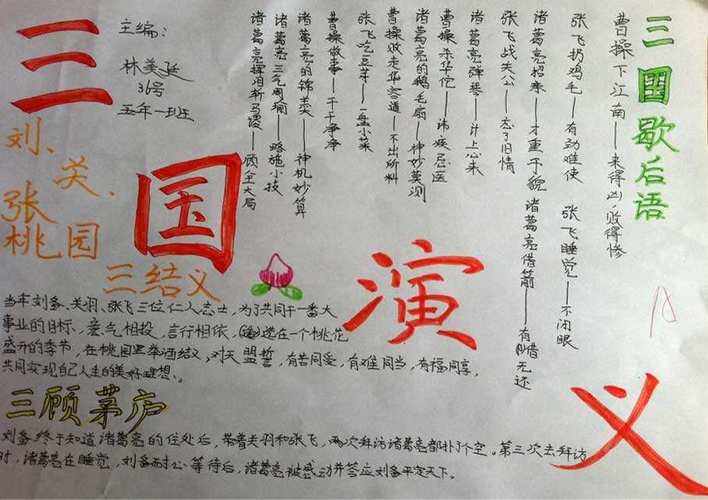 三国演义
主编：
林美延
36号
五年一班
三国歇后语
曹操下江南——来得凶，败得惨
张飞扔鸡毛——有劲难使
张飞睡觉——不闭眼
诸葛亮招亲——才重于貌
诸葛亮借箭——有借无还
张飞战关公——忘了旧情
诸葛亮弹琴——计上心来
曹操杀华佗——讳疾忌医
诸葛亮的鹅毛扇——神妙莫测
曹操败走华容道——不出所料
张飞吃豆芽——一盘小菜
曹操做事——干干净净
诸葛亮的锦囊——神机妙算
诸葛亮三气周瑜——略施小技
诸葛亮挥泪斩马谡——顾全大局
刘、关、
张
桃园
三结义
当年刘备、关羽、张飞三位仁人志士，为了共同干一番大
事业的目标，意气相投，言行相依，选在一个桃花
盛开的季节，在桃园里举酒结义，对天盟誓，有苦同受，有难同当，有福同享，
共同实现自己人生的美好理想。
三顾茅庐
刘备终于知道诸葛亮的住处后，带着关羽和张飞，两次拜访诸葛亮都扑了个空。第三次去拜访
时，诸葛亮在睡觉，刘备耐心等待后，诸葛亮被感动并答应刘备平定天下。